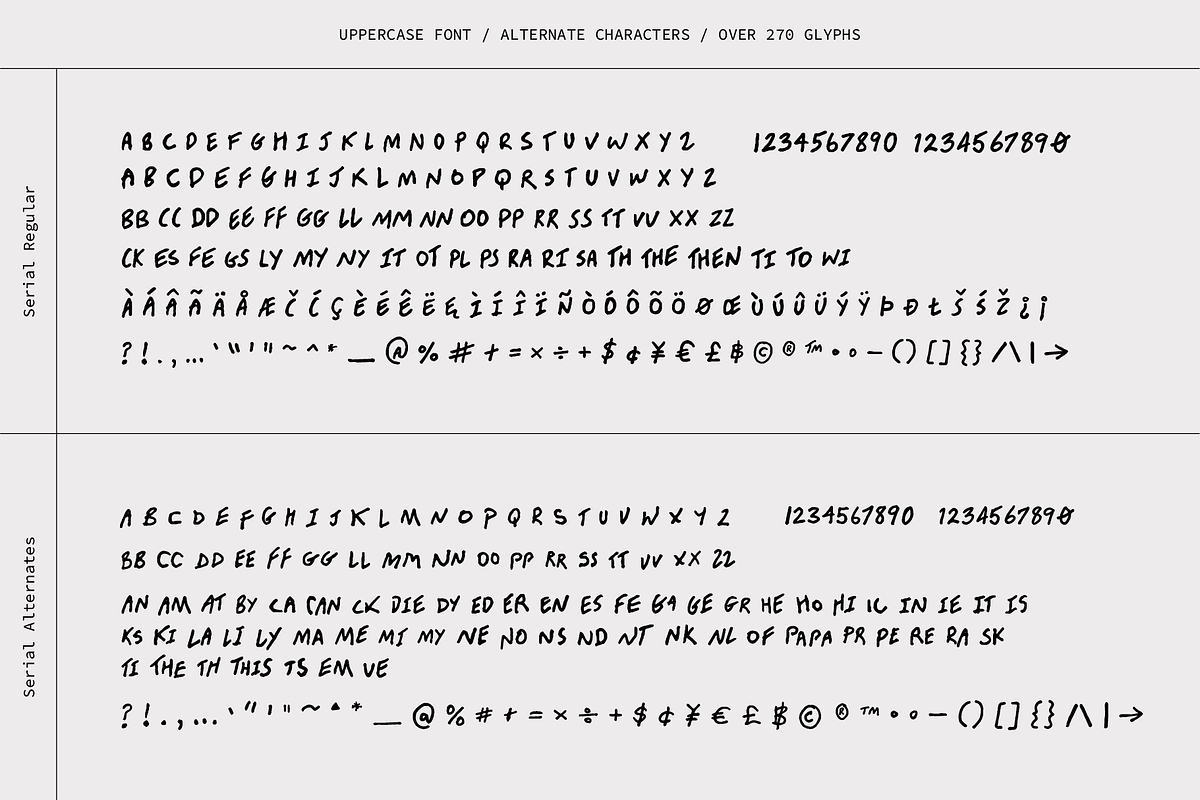 UPPERCASE FONT / ALTERNATE CHARACTERS / OVER 270 GLYPHS
Serial Regular
A B C D E F G H I J K L M N O P Q R S T U V W X Y Z 1234567890 1234567890
A B C D E F G H I J K L M N O P Q R S T U V W X Y Z
BB CC DD EE FF GG LL MM NN OO PP RR SS TT VV XX ZZ
CK ES FE GS LY MY NY IT OT PL PS RA RI SA TH THE THEN TI TO WI
À Á Â Ã Ä Å Æ Č Ć Ç È É Ê Ë Ę Ì Í Î Ï Ñ Ò Ó Ô Õ Ö Ø Œ Ù Ú Û Ü Ý Ÿ Þ Ð Ł Š Ś Ž ¿ ¡
? ! . , ... ‘ “ ' " ~ ^ * _ @ % # + = × ÷ + $ ¢ ¥ € £ ฿ © ® ™ • ∘ – ( ) [ ] { } / \ | →
Serial Alternates
A B C D E F G H I J K L M N O P Q R S T U V W X Y Z 1234567890 1234567890
BB CC DD EE FF GG LL MM NN OO PP RR SS TT VV XX ZZ
AN AM AT BY CA CAN CK DIE DY ED ER EN ES FE GA GE GR HE HO HI IC IN IE IT IS
KS KI LA LI LY MA ME MI MY NE NO NS ND NT NK NL OF PAPA PR PE RE RA SK
TI THE TH THIS TS EM VE
? ! . , ... ‘ “ ' " ~ ^ * _ @ % # + = × ÷ + $ ¢ ¥ € £ ฿ © ® ™ • ∘ – ( ) [ ] { } / \ | →